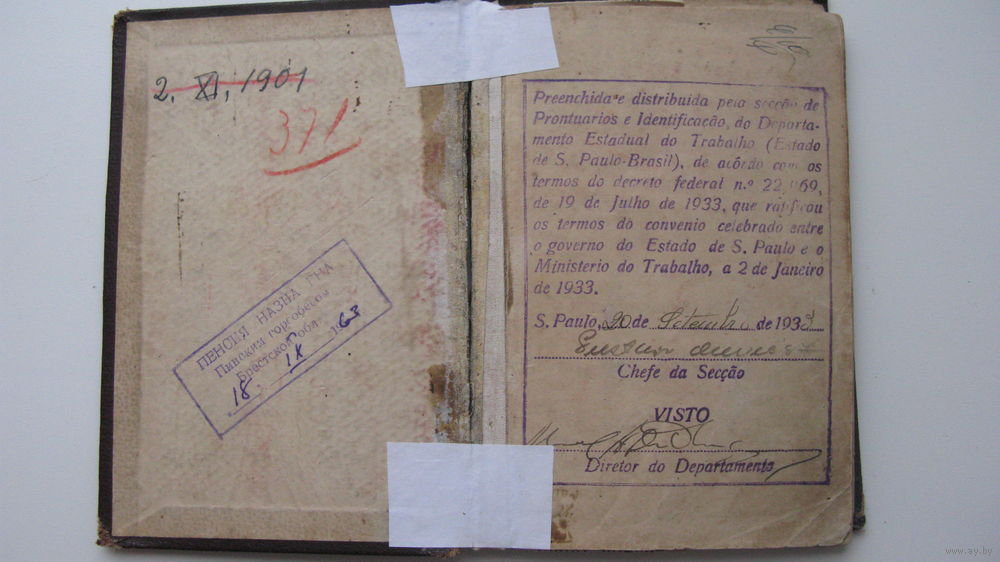 2. XI, 1901
371
ПЕНСИЯ НАЗНА
Пинским горсобесом
Брестской обл.
18 IX 1963
Preenchida e distribuida pela secção de
Prontuarios e Identificação, do Departa-
mento Estadual do Trabalho (Estado
de S. Paulo-Brasil), de acôrdo com os
termos do decreto federal n.º 22. 69,
de 19 de Julho de 1933, que ratificou
os termos do convenio celebrado entre
o governo do Estado de S. Paulo e o
Ministerio do Trabalho, a 2 de Janeiro
de 1933.
S. Paulo, 20 de Setembro de 1933
Chefe da Secção
VISTO
Diretor do Departamento
www.ay.by